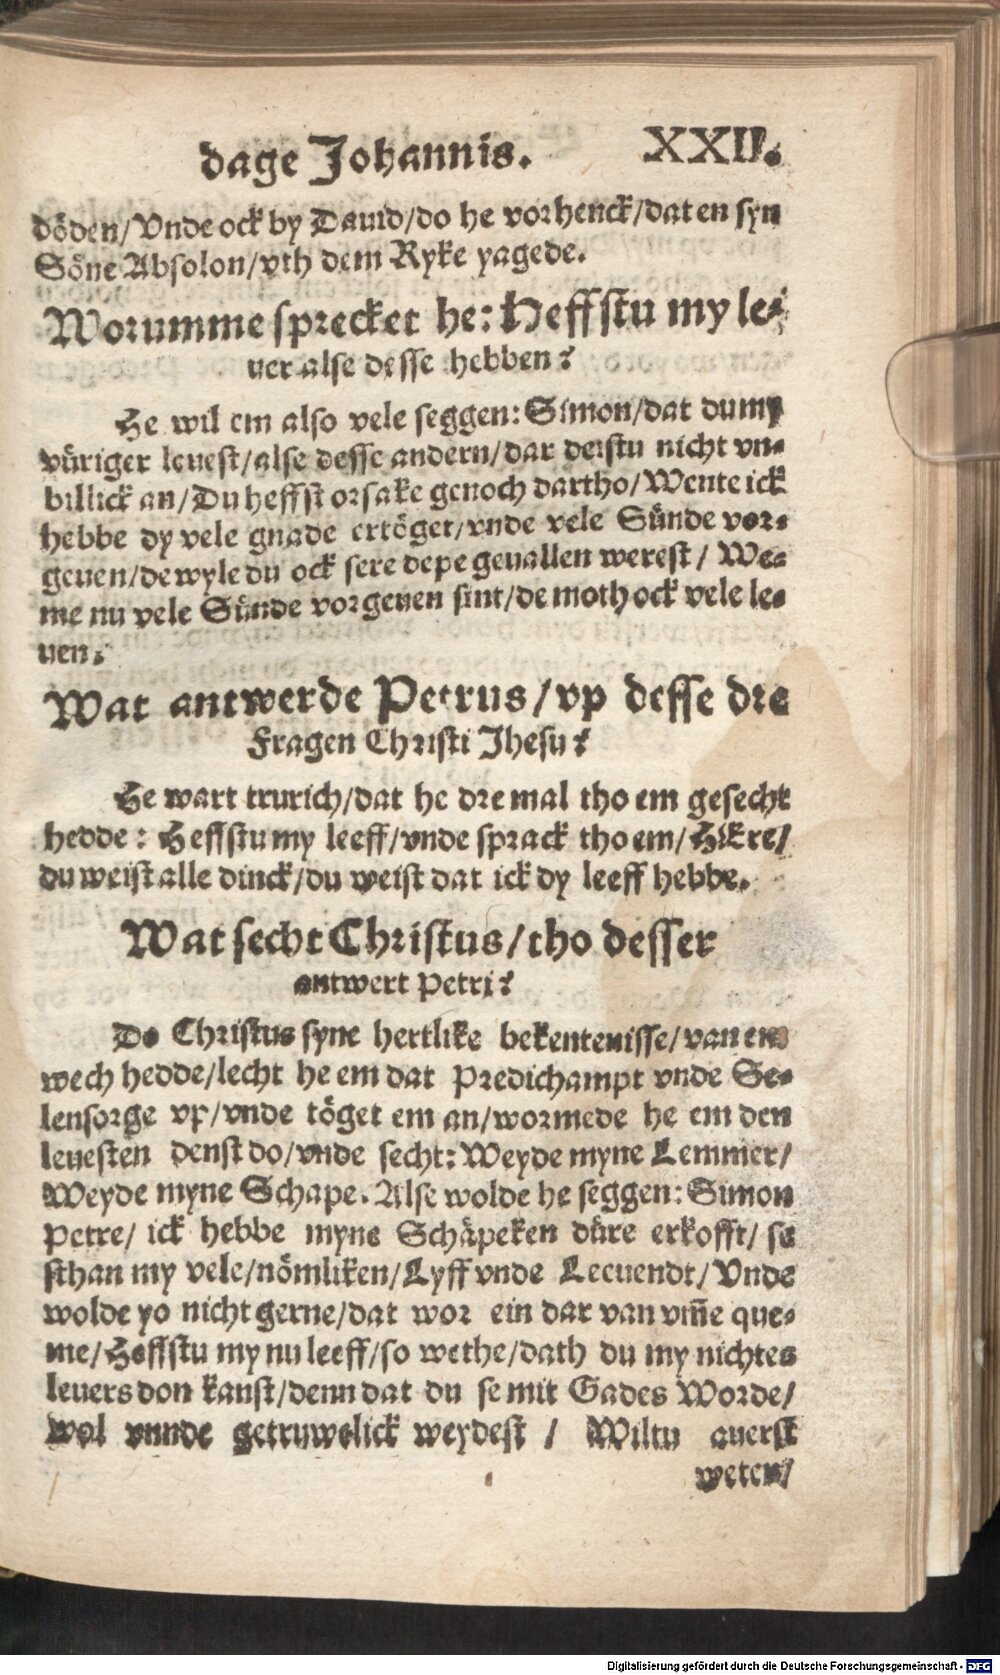 dage Johannis. XXII.
döden/ Vnde ock by Dauid/ do he vorhenck/ dat en syn
Söne Absolon/ vth dem Ryke yagede.
Worumme sprecket he: Heffstu my le-
uer alse desse hebben?
He wil em also vele seggen: Simon/ dat du my
vüriger leuest/ alse desse andern/ dar deistu nicht vn-
billick an/ Du heffst orsake genoch dartho/ Wente ick
hebbe dy vele gnade ertöget/ vnde vele Sünde vor-
geuen/ de wyle du ock sere depe geuallen werest/ We-
me nu vele Sünde vorgeuen sint/ de moth ock vele le-
uen.
Wat antwerde Petrus/ vp desse dre
Fragen Christi Jhesu?
He wart trurich/ dat he dre mal tho em gesecht
hedde: Heffstu my leeff/ vnde sprack tho em/ HEre/
du weist alle dinck/ du weist dat ick dy leeff hebbe.
Wat secht Christus/ tho desser
antwert Petri?
Do Christus syne hertlike bekentenisse/ van em
wech hedde/ lecht he em dat Predichampt vnde Se-
lensorge vp/ vnde töget em an/ wormede he em den
leuesten denst do/ vnde secht: Weyde myne Lemmer/
Weyde myne Schape. Alse wolde he seggen: Simon
Petre/ ick hebbe myne Schäpeken düre erkofft/ se
sthan my vele/ nömliken/ Lyff vnde Leeuendt/ Vnde
wolde yo nicht gerne/ dat wor ein dar van vm̄e que-
me/ Heffstu my nu leeff/ so wethe/ dath du my nichtes
leuers don kanst/ denn dat du se mit Gades Worde/
wol vnnde getruwelick weydest / Wiltu auerst
weten/
Digitalisierung gefördert durch die Deutsche Forschungsgemeinschaft - DFG